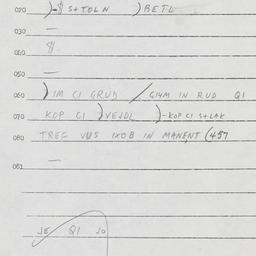 020 )-$ S+TOLN )BETL
030 —
050
050 —
060 )IM CI GRUD /GI4M IN RUD QI
070 KOP CI )VEJDL )-KOP CI S+LAK
080 TREG VUS IXOB IN MANENT (457
081 —
JE QI JO